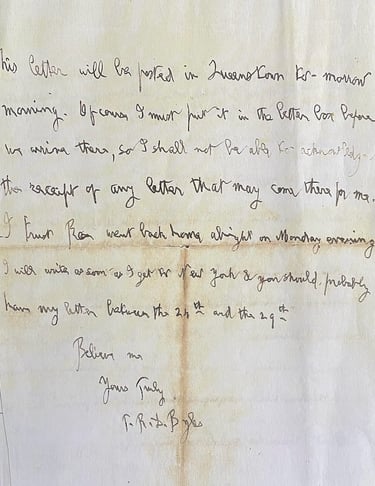 This letter will be posted in Queenstown to-morrow
morning. Of course I must put it in the letter box before
we arrive there, so I shall not be able to acknowledge
the receipt of any letter that may come there for me.
I trust went back home alright on Monday evening
I will write as soon as I get to New York & you should probably
have my letter between the 24th and the 29th
Believe me
Yours Truly
T. R. D. Byles